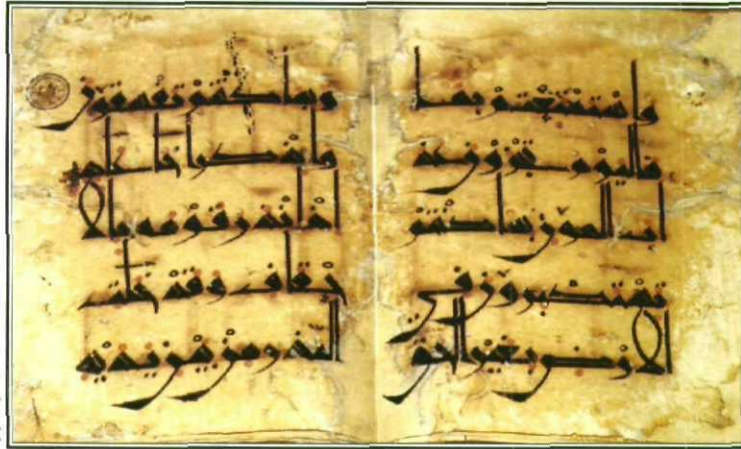 واستمتعتم بها
فاليوم تجزون عذ
اب الهون بما كنتم
تستكبرون في
الارض بغير الحق
وبما كنتم تفسقون
واذكر اخا عاد
اذ انذر قومه بالا
حقاف وقد خلت
النذر من بين يديه